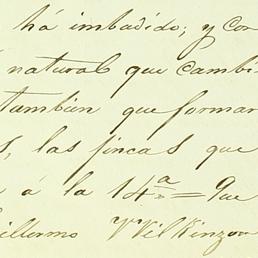 há imbadido; y con
natural que cambi
tambien que formar
s, las fincas que
á la 14ª = Que
illermo Wilkinzon